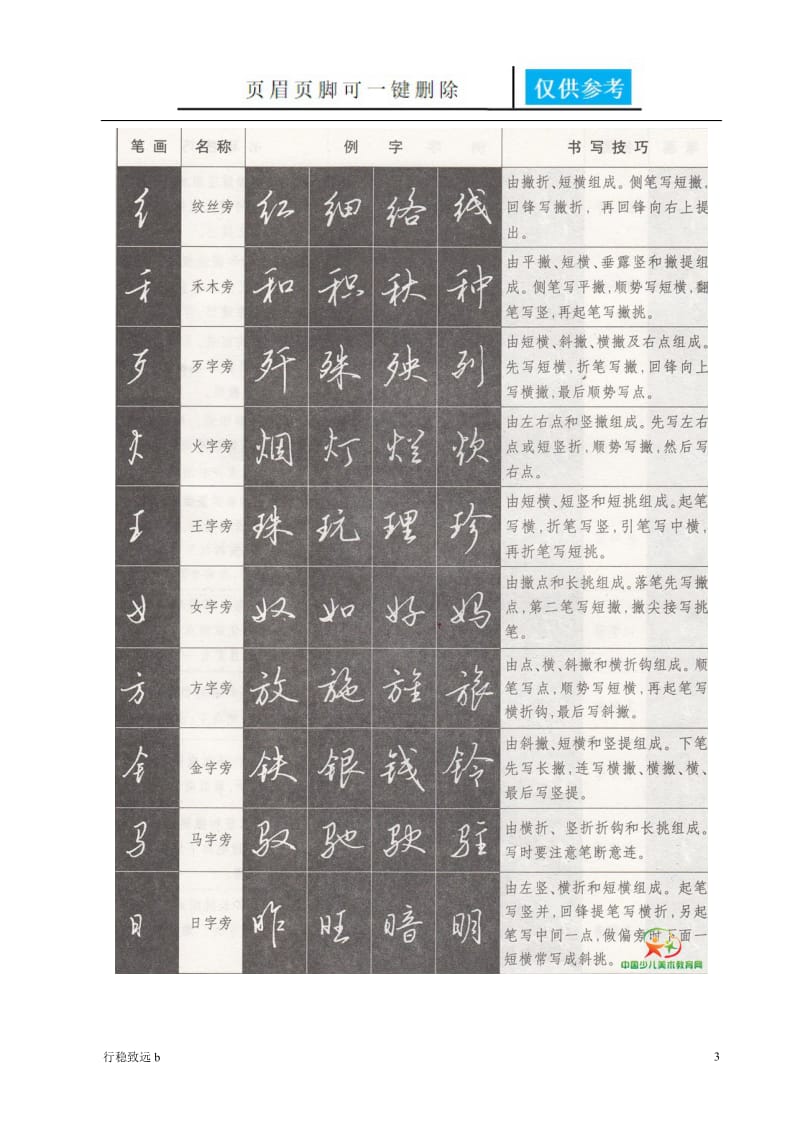 页眉页脚可一键删除 仅供参考
笔画 名称 例字 书写技巧
纟 绞丝旁 红 细 络 线
由撇折、短横组成。侧笔写短撇,
回锋写撇折,再回锋向右上提
出。
禾 禾木旁 和 积 秋 种
由平撇、短横、垂露竖和撇提组
成。侧笔写平撇,顺势写短横,翻
笔写竖,再起笔写撇挑。
歹 歹字旁 歼 殊 殃 列
由短横、斜撇、横撇及右点组成。
先写短横,折笔写撇,回锋向上
写横撇,最后顺势写点。
火 火字旁 烟 灯 烂 炊
由左右点和竖撇组成。先写左右
点或短竖折,顺势写撇,然后写
右点。
王 王字旁 珠 玩 理 珍
由短横、短竖和短挑组成。起笔
写横,折笔写竖,引笔写中横,
再折笔写短挑。
女 女字旁 奴 如 好 妈
由撇点和长挑组成。落笔先写撇
点,第二笔写短撇,撇尖接写挑
笔。
方 方字旁 放 施 旌 旅
由点、横、斜撇和横折钩组成。顺
笔写点,顺势写短横,再起笔写
横折钩,最后写斜撇。
钅 金字旁 铁 银 钱 铃
由斜撇、短横和竖提组成。下笔
先写长撇,连写横撇、横撇、横、
最后写竖提。
马 马字旁 驭 驰 驶 驻
由横折、竖折折钩和长挑组成。
写时要注意笔断意连。
日 日字旁 昨 旺 暗 明
由左竖、横折和短横组成。起笔
写竖并,回锋提笔写横折,另起
笔写中间一点,做偏旁时下面一
短横常写成斜挑。
中国少儿美术教育网
行稳致远 b 3